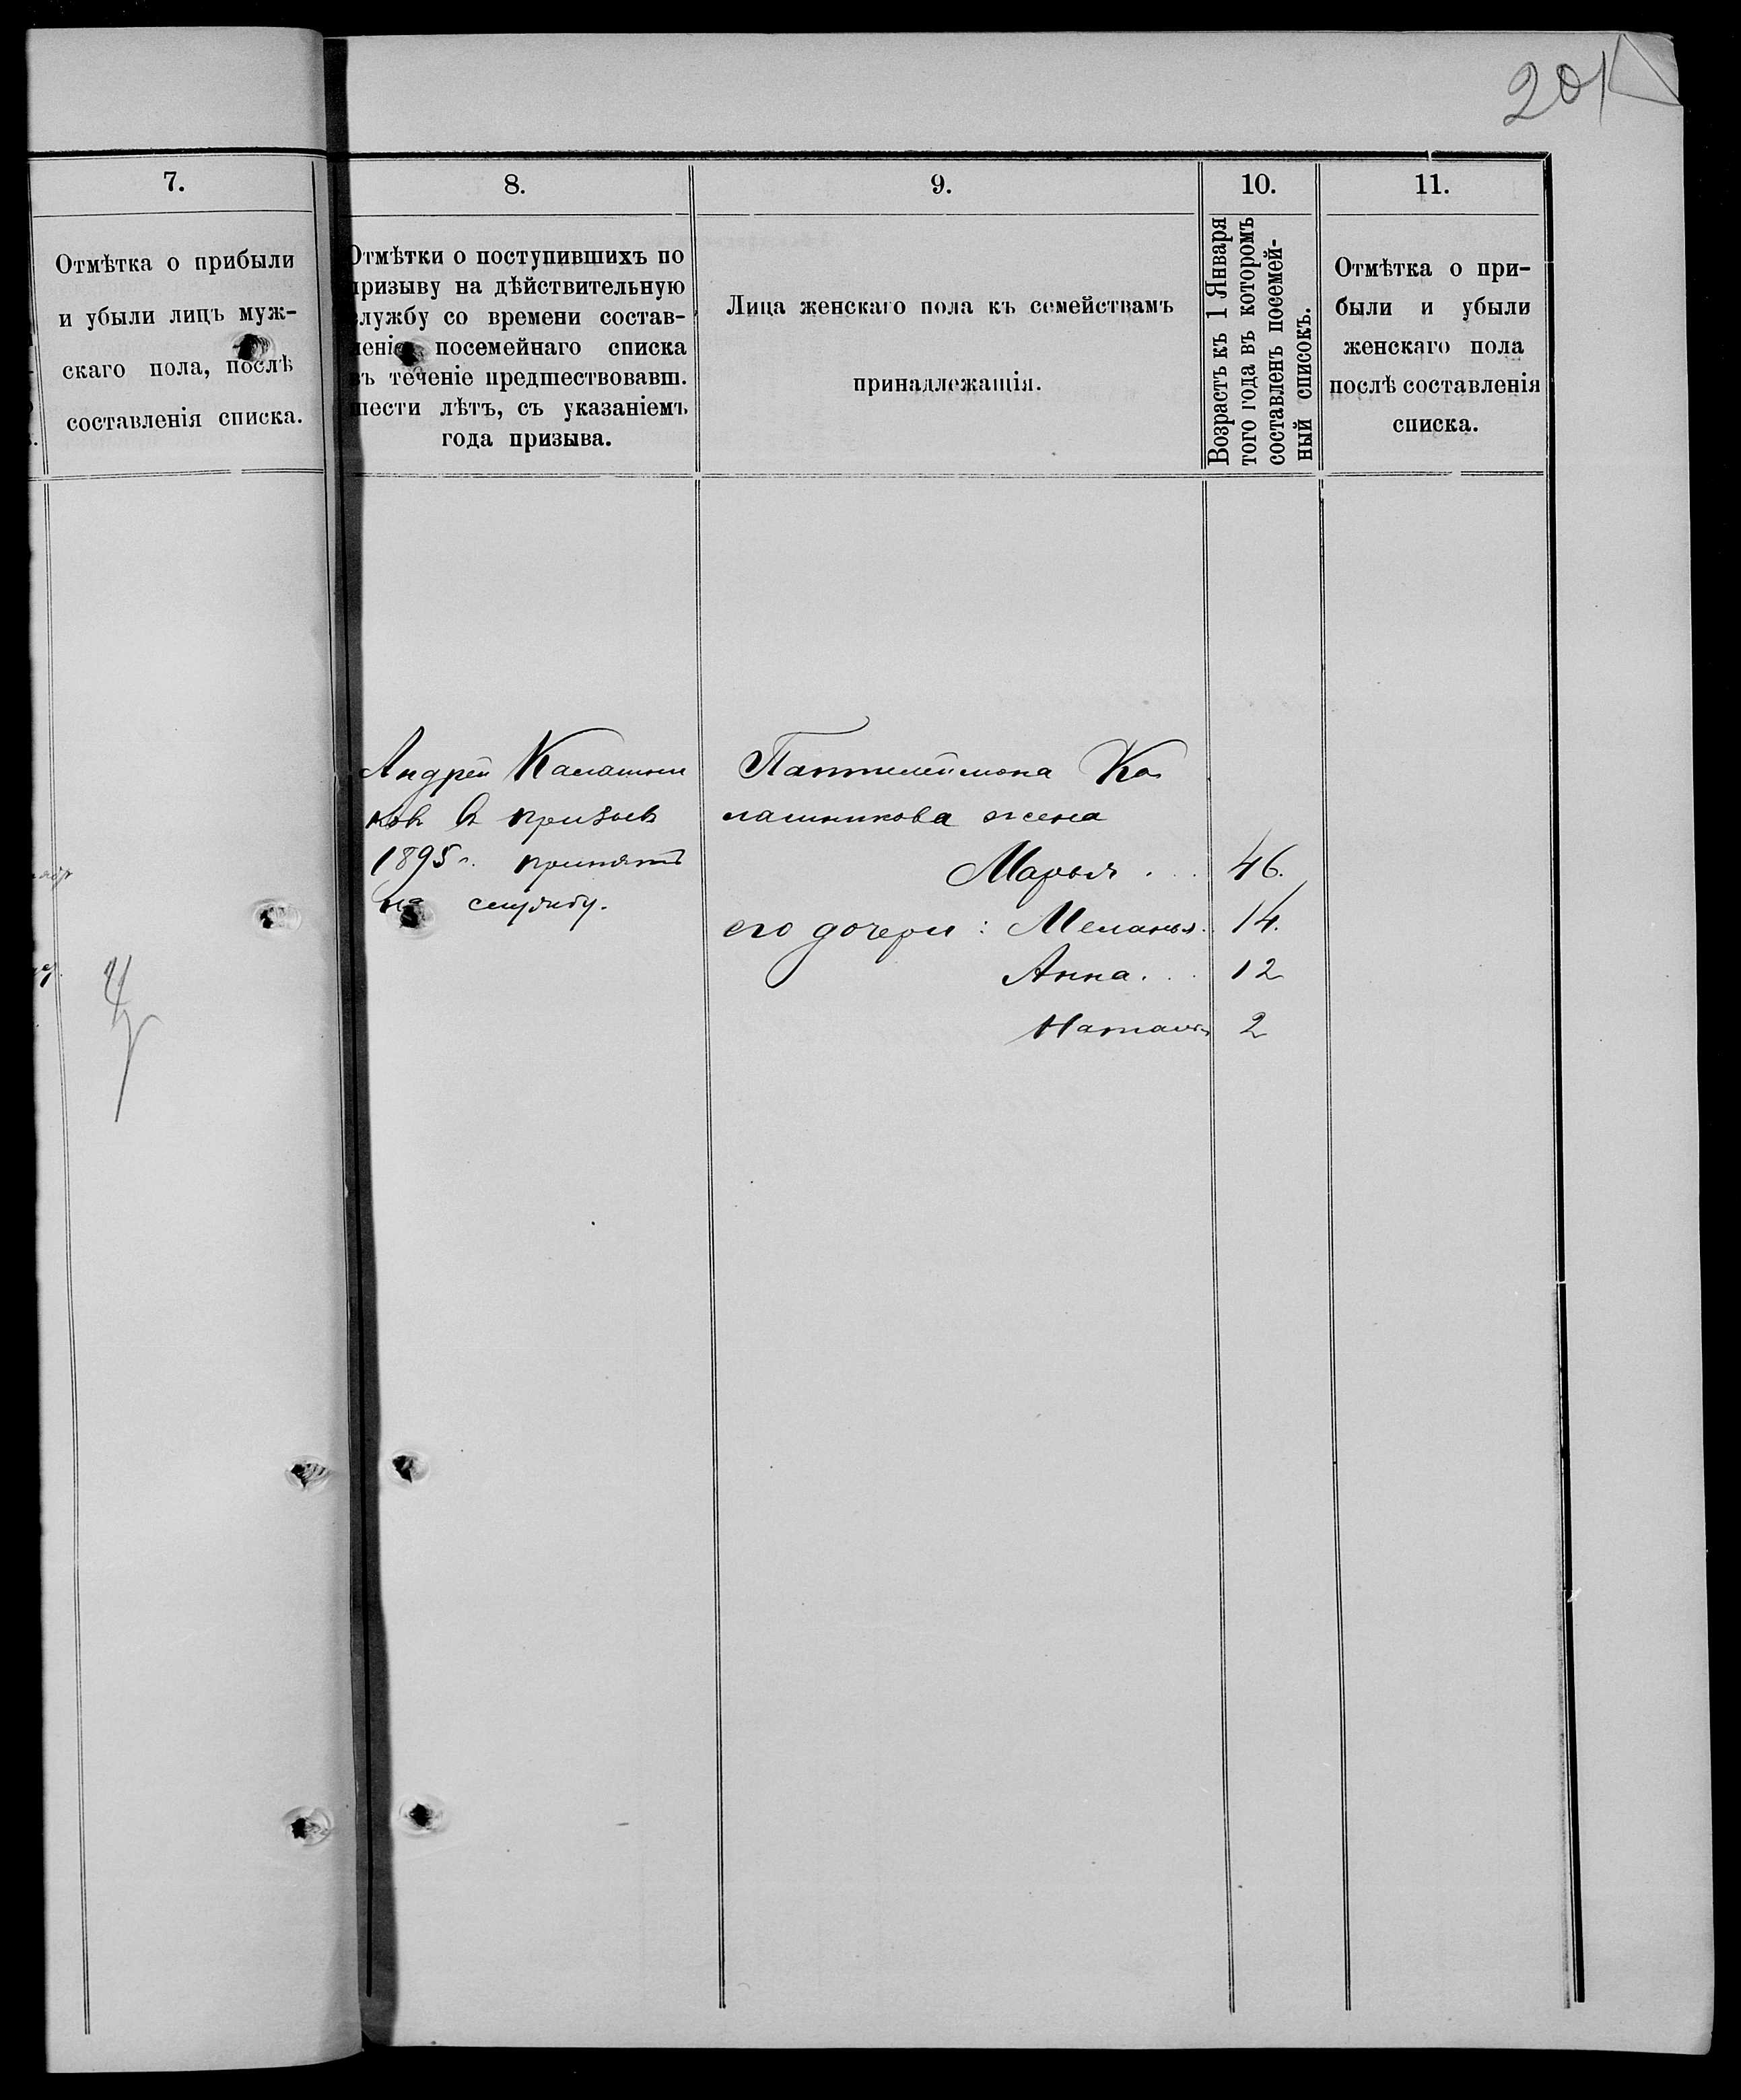 201
7.
Отмѣтка о прибыли
и убыли лицъ муж-
скаго пола, послѣ
составленія списка.
8.
Отмѣтки о поступившихъ по
призыву на дѣйствительную
службу со времени состав-
ленія посемейнаго списка
въ теченіе предшествовавш.
шести лѣтъ, съ указаніемъ
года призыва.
9.
Лица женскаго пола къ семействамъ
принадлежащія.
10.
Возрастъ къ 1 Января
того года въ которомъ
составленъ посемей-
ный списокъ.
11.
Отмѣтка о при-
были и убыли
женскаго пола
послѣ составленія
списка.
Андрей Калашни
ковъ въ призывъ
1895 г. принятъ
на службу.
Пантилеймона Ка
лашникова жена
Марья . . 46.
его дочери: Меланья. 14.
Анна. . . 12
Наталья 2